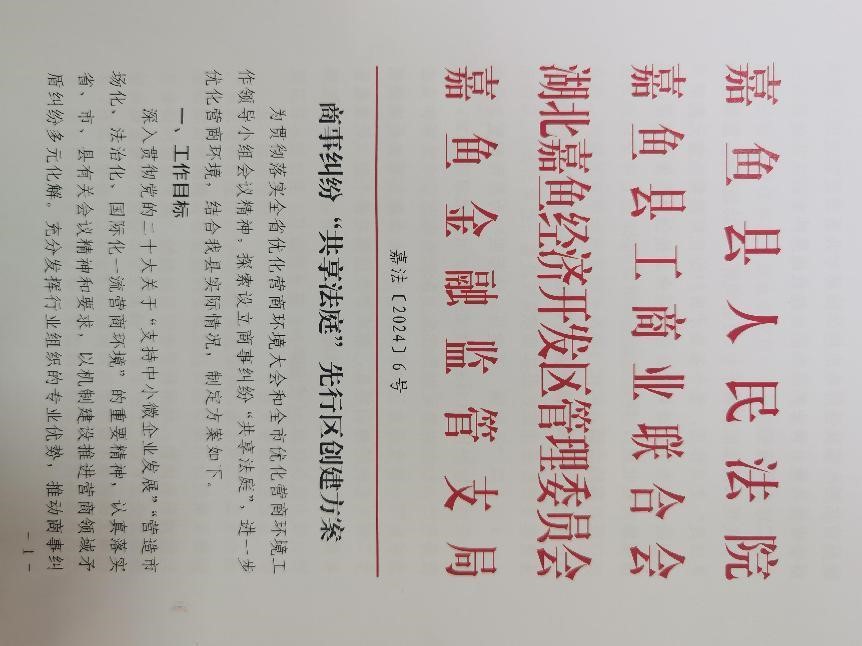 嘉鱼县人民法院
嘉鱼县工商业联合会
湖北嘉鱼经济开发区管理委员会
嘉鱼金融监管支局
嘉法〔2024〕6号
商事纠纷“共享法庭”先行区创建方案
为贯彻落实全省优化营商环境大会和全市优化营商环境工
作领导小组会议精神，探索设立商事纠纷“共享法庭”，进一步
优化营商环境，结合我县实际情况，制定方案如下。
一、工作目标
深入贯彻党的二十大关于“支持中小微企业发展”“营造市
场化、法治化、国际化一流营商环境”的重要精神，认真落实
省、市、县有关会议精神和要求，以机制建设推进营商领域矛
盾纠纷多元化解。充分发挥行业组织的专业优势，推动商事纠
- 1 -